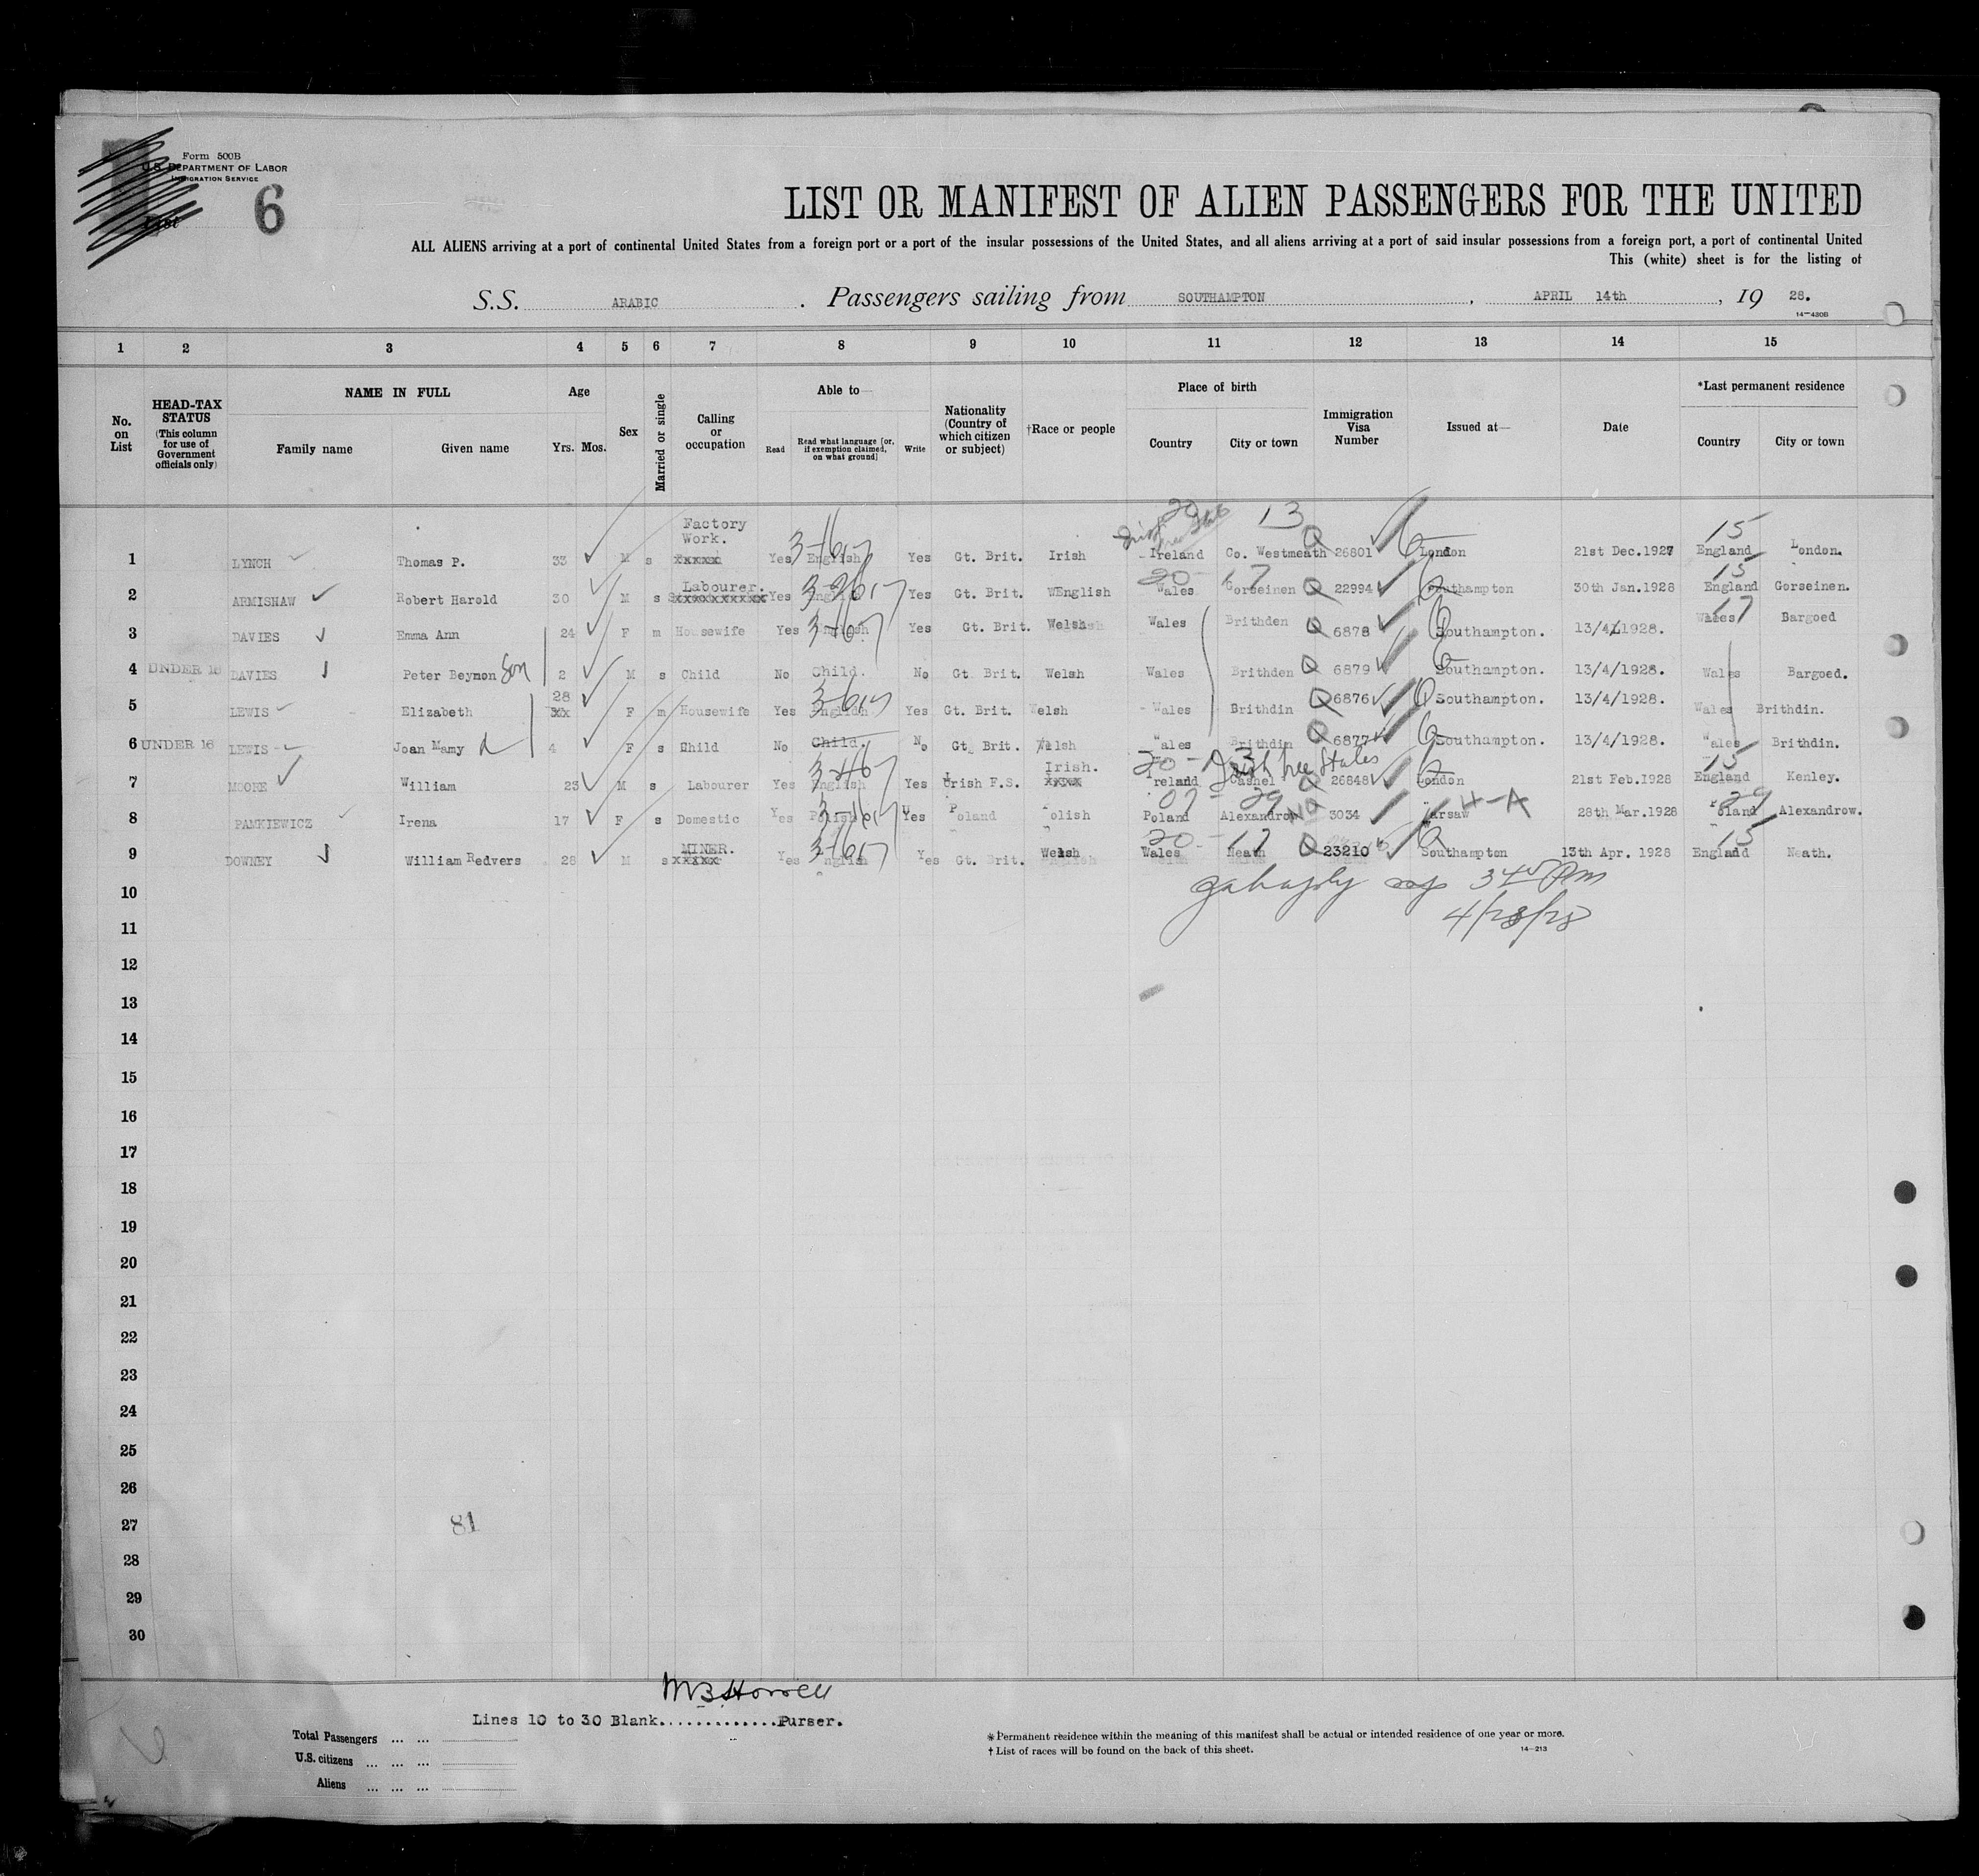 Form 500B
U.S. DEPARTMENT OF LABOR
IMMIGRATION SERVICE
List 6
LIST OR MANIFEST OF ALIEN PASSENGERS FOR THE UNITED
ALL ALIENS arriving at a port of continental United States from a foreign port or a port of the insular possessions of the United States, and all aliens arriving at a port of said insular possessions from a foreign port, a port of continental United
This (white) sheet is for the listing of
S.S. ARABIC. Passengers sailing from SOUTHAMPTON, APRIL 14th, 19 28.
14—430B
1 2 3 4 5 6 7 8 9 10 11 12 13 14 15
No. on List
HEAD-TAX STATUS (This column for use of Government officials only)
NAME IN FULL
Family name Given name
Age
Yrs. Mos.
Sex
Married or single
Calling or occupation
Able to—
Read Read what language [or, if exemption claimed, on what ground] Write
Nationality (Country of which citizen or subject)
†Race or people
Place of birth
Country City or town
Immigration Visa Number
Issued at—
Date
*Last permanent residence
Country City or town
20 13 15
1 LYNCH Thomas P. 33 M s Factory Work. xxxxx Yes English Yes Gt. Brit. Irish Ireland Co. Westmeath Q 26801 London 21st Dec.1927 England London.
20 17 15
2 ARMISHAW Robert Harold 30 M s Labourer. Yes English Yes Gt. Brit. English Wales Gorseinen Q 22994 Southampton 30th Jan.1928 England Gorseinen.
3 DAVIES Emma Ann 24 F m Housewife Yes English Yes Gt. Brit. Welsh Wales Brithden Q 6878 Southampton. 13/4/1928. Wales 17 Bargoed
4 UNDER 16 DAVIES Peter Beymon Son 2 M s Child No Child. No Gt. Brit. Welsh Wales Brithden Q 6879 Southampton. 13/4/1928. Wales Bargoed.
5 LEWIS Elizabeth 28 xx F m Housewife Yes English Yes Gt. Brit. Welsh Wales Brithdin Q 6876 Southampton. 13/4/1928. Wales Brithdin.
6 UNDER 16 LEWIS Joan Mamy d 4 F s Child No Child. No Gt. Brit. Welsh Wales Brithdin Q 6877 Southampton. 13/4/1928. Wales Brithdin.
20 - 13 Irish Free States 15
7 MOORE William 23 M s Labourer Yes English Yes Irish F.S. Irish. xxxx Ireland Cashel Q 26848 London 21st Feb.1928 England Kenley.
07 - 29 NQ 4-A 29
8 PAMKIEWICZ Irena 17 F s Domestic Yes Polish Yes Poland Polish Poland Alexandrow 3034 Warsaw 28th Mar.1928 Poland Alexandrow.
20 - 17 15
9 DOWNEY William Redvers 28 M s MINER. xxxxx Yes English Yes Gt. Brit. Welsh Wales Neath Q 23210 Southampton 13th Apr. 1928 England Neath.
10
4/28/28
11
12
13
14
15
16
17
18
19
20
21
22
23
24
25
26
27
81
28
29
30
MB Howell
Lines 10 to 30 Blank.............Purser.
Total Passengers ... ...
U.S. citizens ... ... ...
Aliens ... ... ...
* Permanent residence within the meaning of this manifest shall be actual or intended residence of one year or more.
† List of races will be found on the back of this sheet. 14—213